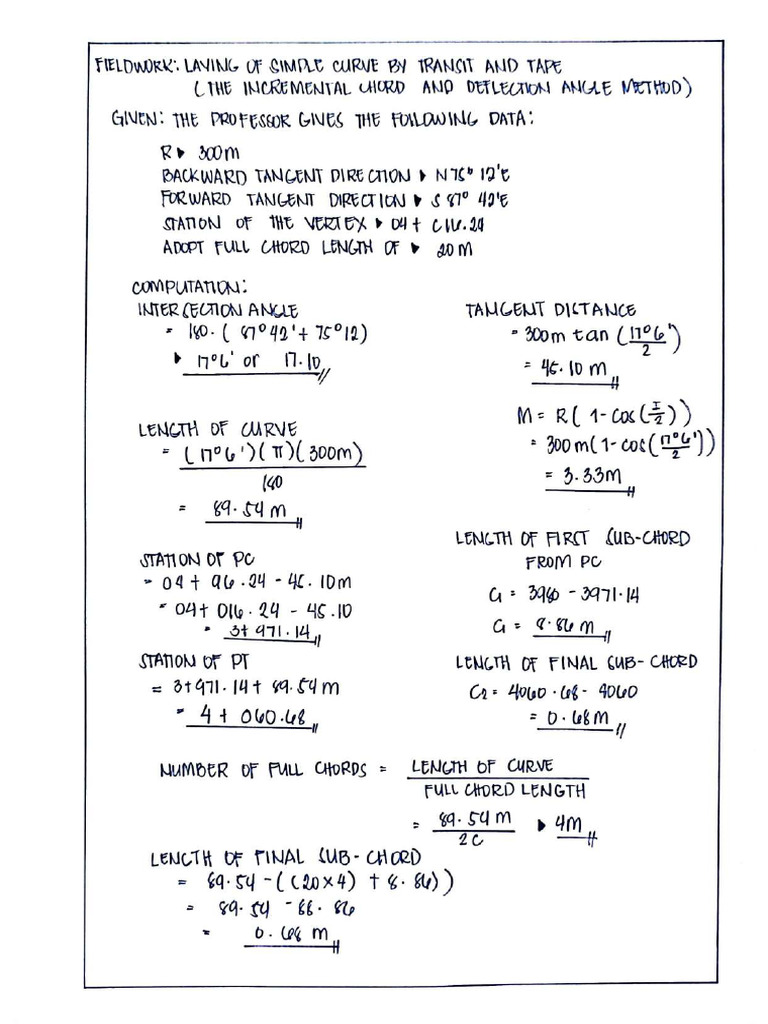 FIELDWORK: LAYING OF SIMPLE CURVE BY TRANSIT AND TAPE
(THE INCREMENTAL CHORD AND DEFLECTION ANGLE METHOD)
GIVEN: THE PROFESSOR GIVES THE FOLLOWING DATA:
R ▸ 300m
BACKWARD TANGENT DIRECTION ▸ N75° 12'E
FORWARD TANGENT DIRECTION ▸ S 87° 42'E
STATION OF THE VERTEX ▸ 04+ 016.24
ADOPT FULL CHORD LENGTH OF ▸ 20M
COMPUTATION:
INTERSECTION ANGLE
= 180-(87°42'+75°12)
▸ 17°6' or 17.10
LENGTH OF CURVE
= (17°6')(π)(300m)
180
= 89.54 m
STATION OF PC
= 04+ 96.24 - 45.10m
= 04+ 016.24 - 45.10
= 3+971.14
STATION OF PT
= 3+971.14+89.54m
= 4+060.68
TANGENT DISTANCE
= 300m tan (17°6'/2)
= 45.10 m
M = R(1-cos(I/2))
= 300m(1-cos(17°6'/2))
= 3.33m
LENGTH OF FIRST SUB-CHORD
FROM PC
C1 = 3980 - 3971.14
C1 = 8.86 m
LENGTH OF FINAL SUB-CHORD
C2 = 4060.68 - 4060
= 0.68M
NUMBER OF FULL CHORDS = LENGTH OF CURVE
FULL CHORD LENGTH
= 89.54M ▸ 4M
20
LENGTH OF FINAL SUB-CHORD
= 89.54-((20×4) + 8.86))
= 89.54 - 88.86
= 0.68 m